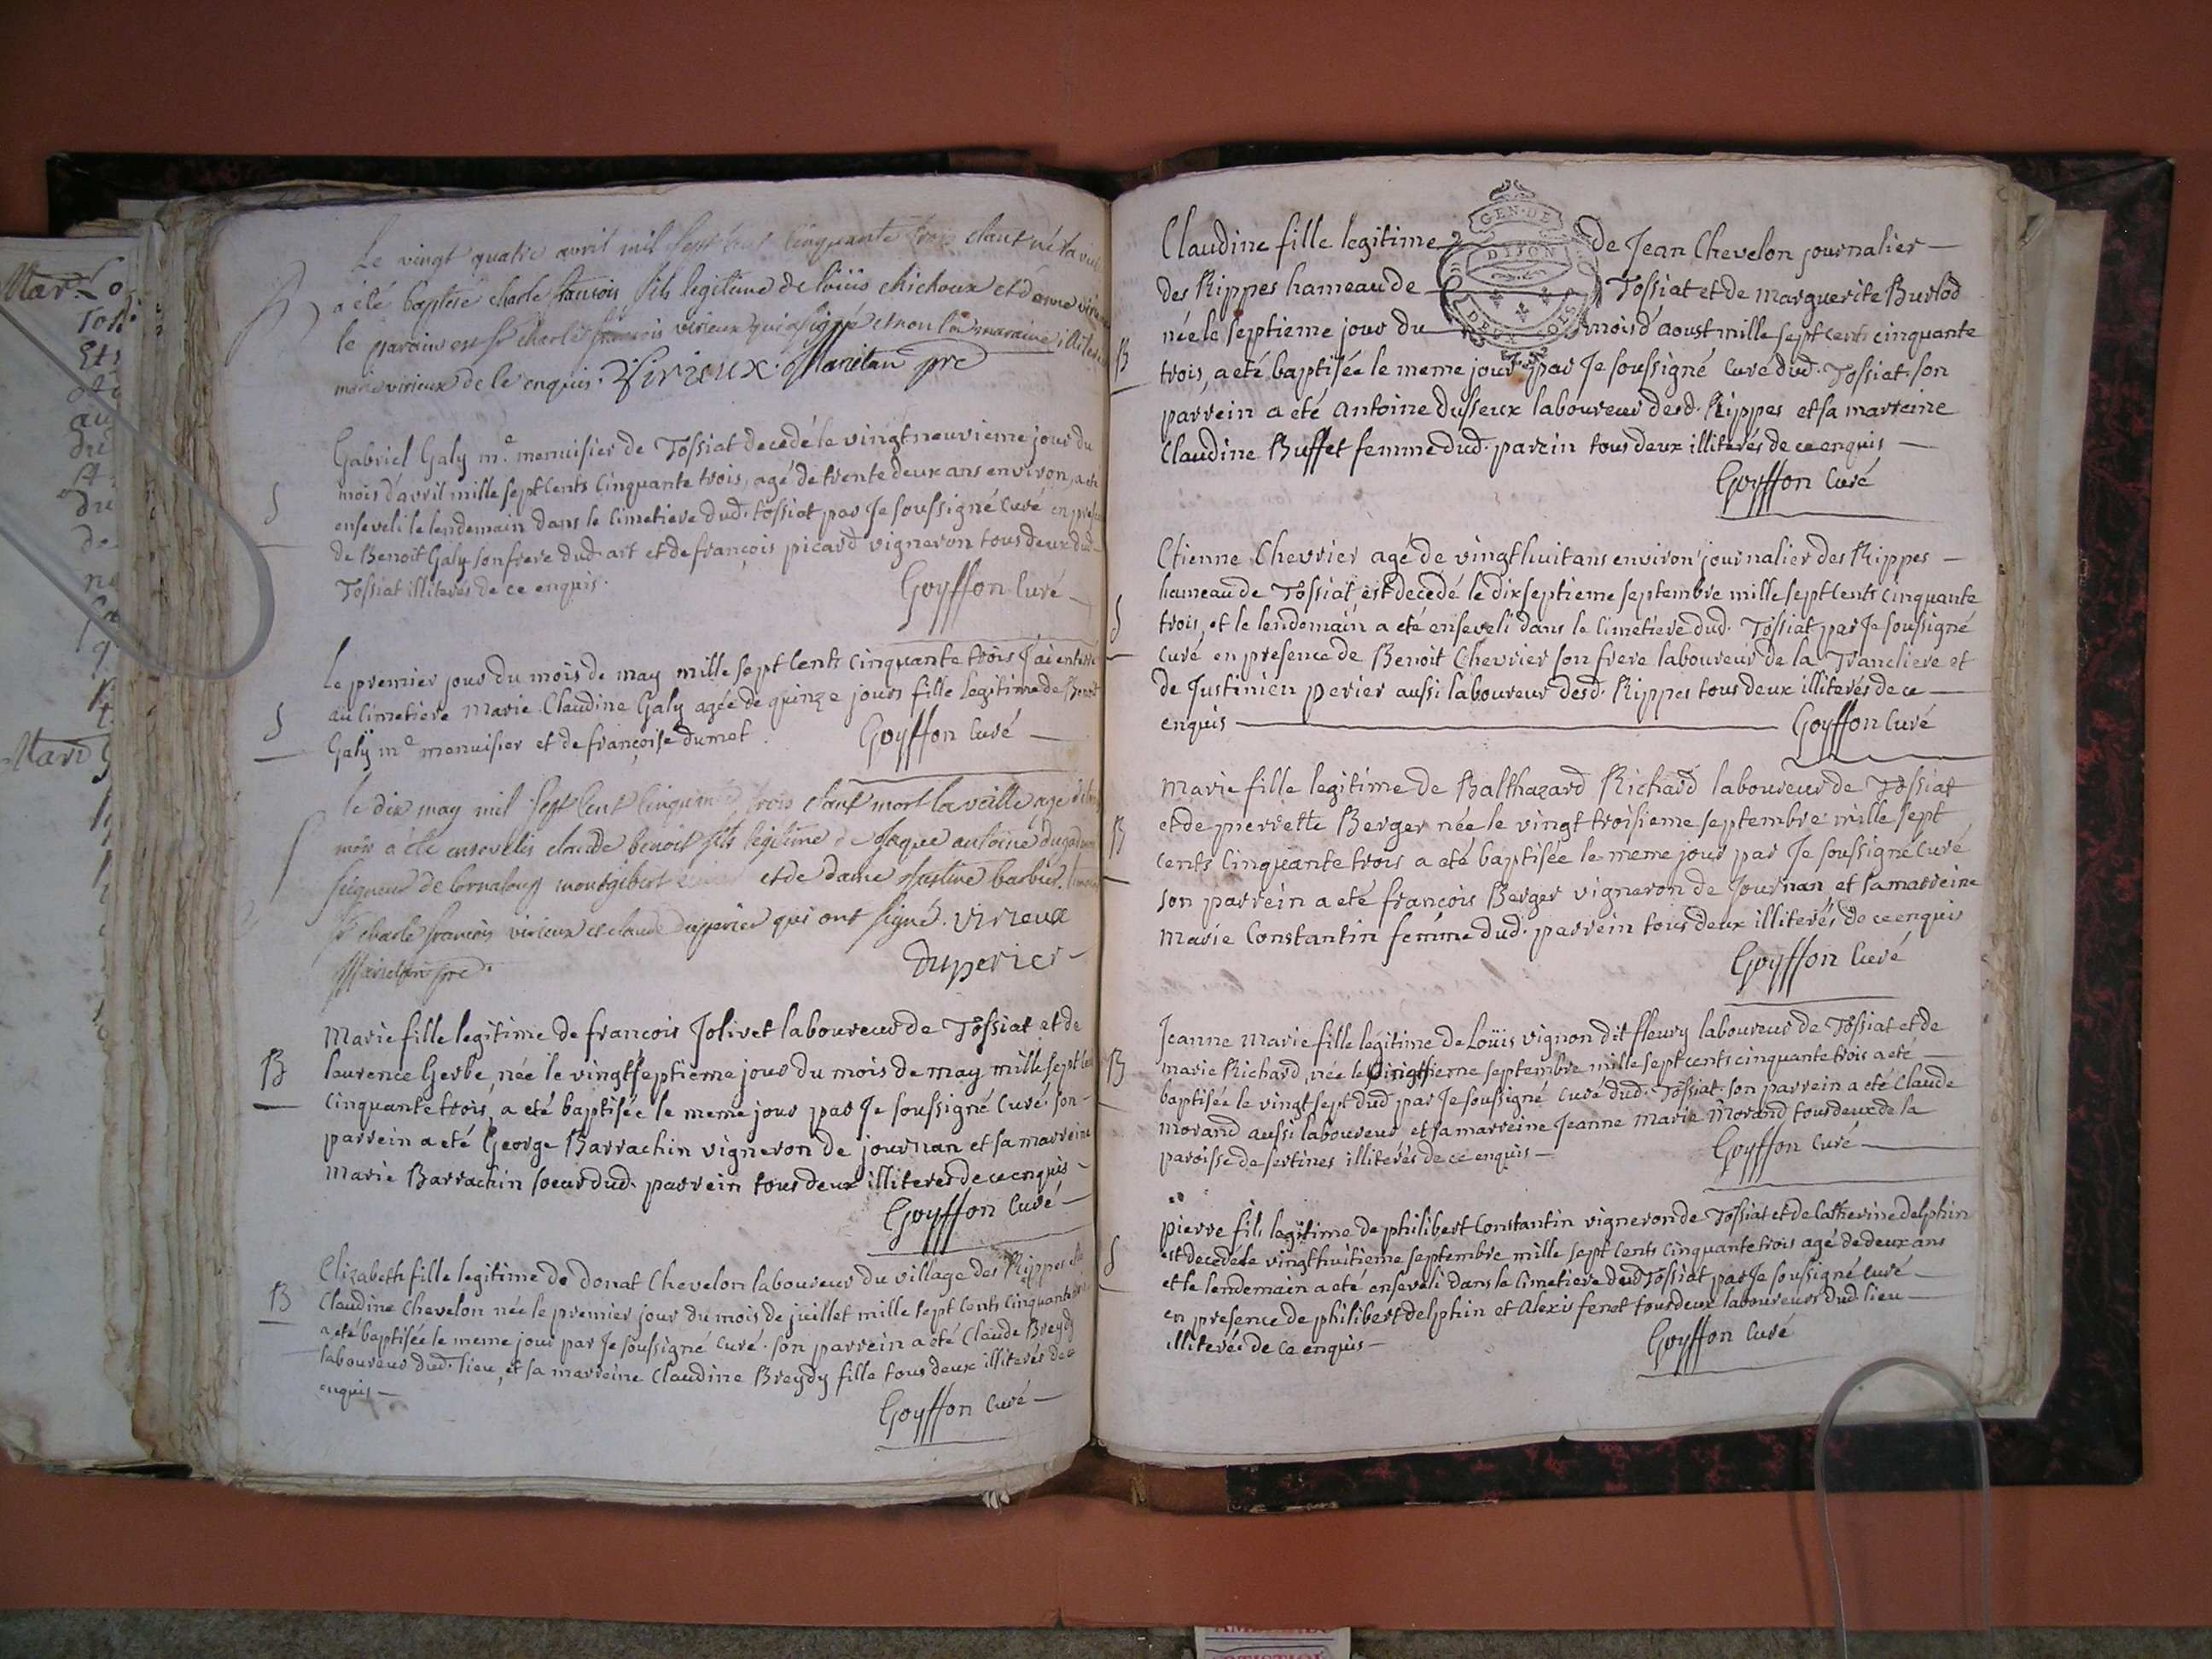 Le vingt quatre avril mil sept cent cinquante trois etant né la veille
B
a été baptisé charle francois fils legitime de loüis chichoux et d'anne
le parain est sr charle francois virieux qui a signé et non la maraine illiterée
marie virieux de le enquis. Virieux. Maritan pre
Gabriel Galy me. menuisier de Tossiat decedé le vingt neuvieme jour du
mois d'avril mille sept cents cinquante trois, agé de trente deux ans environ, a eté
S
enseveli le lendemain dans le cimetiere dud. tossiat par Je soussigné curé en presence
de Benoit Galy son frere dud. art et de françois picard vigneron tous deux dud.
Tossiat illiterés de ce enquis.
Goyffon curé
Le premier jour du mois de may mille sept cents cinquante trois J'ai enterré
au cimetiere Marie Claudine Galy agée de quinze jours fille legitime de Benoit
S
Galÿ me menuisier et de françoise dumet.
Goyffon curé
le dix may mil sept cent cinquante trois etant mort la veille agé
mois a été ensevelis claude benoit fils legitime de Jaque antoine
S
seigneur de Cornaloup montgibert et de dame Justine barbier.
sr charle francois virieux et claude duperier qui ont signé. Virieux
Maritan pre.
duperier
Marie fille legitime de francois Jolivet laboureur de Tossiat et de
B
laurence Gerbe, née le vingt septieme jour du mois de may mille sept cents
cinquante trois, a eté baptisée le meme jour par Je soussigné curé. son
parrein a eté George Barrachin vigneron de journan et sa marreine
Marie Barrachin soeur dud. parrein tous deux illiterés de ce enquis
Goyffon curé
Elizabeth fille legitime de donat Chevelon laboureur du village des Rippes et de
B
Claudine Chevelon née le premier jour du mois de juillet mille sept cents cinquante trois
a eté baptisée le meme jour par Je soussigné curé. son parrein a eté Claude Breydy
laboureur dud. lieu, et sa marreine Claudine Breydy fille tous deux illiterés de ce
enquis
Goyffon curé
GEN. DE
DIJON
Claudine fille legitime de Jean Chevelon journalier
des Rippes hameau de Tossiat et de marguerite Burlod
née le septieme jour du mois d'aoust mille sept cents cinquante
B
trois, a eté baptisée le meme jour par Je soussigné curé dud. Tossiat. son
parrein a eté Antoine dusseux laboureur desd. Rippes et sa marreine
Claudine Buffet femme dud. parein tous deux illiterés de ce enquis
Goyffon curé
Etienne Chevrier agé de vingt huit ans environ journalier des Rippes
hameau de Tossiat est decedé le dix septieme septembre mille sept cents cinquante
S
trois, et le lendemain a eté enseveli dans le cimetiere dud. Tossiat par Je soussigné
curé en presence de Benoit Chevrier son frere laboureur de la Trancliere et
de Justinien perier aussi laboureur desd. Rippes tous deux illiterés de ce
enquis Goyffon curé
Marie fille legitime de Balthazard Richard laboureur de Tossiat
B
et de pierrette Berger née le vingt troisieme septembre mille sept
cents cinquante trois a eté baptisée le meme jour par Je soussigné curé
son parrein a eté françois Berger vigneron de Journan et sa marreine
Marie Constantin femme dud. parrein tous deux illiterés de ce enquis
Goyffon curé
Jeanne Marie fille legitime de Loüis vignon dit fleury laboureur de Tossiat et de
B
Marie Richard, née le septembre mille sept cents cinquante trois a eté
baptisée le vingt sept dud par Je soussigné curé dud. Tossiat. son parrein a eté Claude
Morand aussi laboureur et sa marreine Jeanne Marie Morand tous deux de la
paroisse de sertines illiterés de ce enquis
Goyffon curé
pierre fils legitime de philibert Constantin vigneron de Tossiat et de Catherine delphin
S
est decedé le vingt huitieme septembre mille sept cents cinquante trois agé de deux ans
et le lendemain a eté enseveli dans le cimetiere dud Tossiat par Je soussigné curé
en presence de philibert delphin et Alexis fenet tous deux laboureurs dud. lieu
illiterés de ce enquis
Goyffon curé